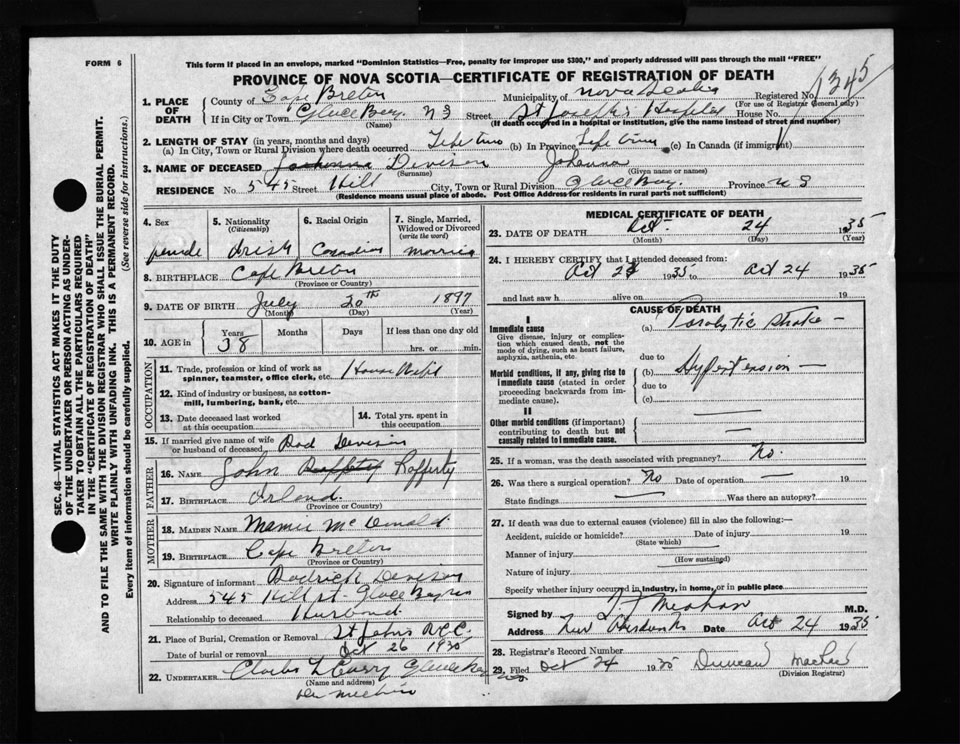 FORM 6
This form if placed in an envelope, marked "Dominion Statistics—Free, penalty for improper use $300," and properly addressed will pass through the mail "FREE"
PROVINCE OF NOVA SCOTIA—CERTIFICATE OF REGISTRATION OF DEATH
1345
1. PLACE OF DEATH
County of Cape Breton Municipality of Nova Scotia Registered No.
(For use of Registrar General only)
If in City or Town Glace Bay N S Street St Joseph's Hospital House No.
(Name) (If death occurred in a hospital or institution, give the name instead of street and number)
2. LENGTH OF STAY (in years, months and days)
(a) In City, Town or Rural Division where death occurred Life time (b) In Province Life time (c) In Canada (if immigrant)
3. NAME OF DECEASED Johanna Devison Johanna
(Surname) (Given name or names)
RESIDENCE No. 545 Street Hill City, Town or Rural Division Glace Bay Province N S
(Residence means usual place of abode. Post Office Address for residents in rural parts not sufficient)
4. Sex
female
5. Nationality
(Citizenship)
Irish
6. Racial Origin
Canadian
7. Single, Married, Widowed or Divorced
(write the word)
married
8. BIRTHPLACE Cape Breton
(Province or Country)
9. DATE OF BIRTH July 20th 1897
(Month) (Day) (Year)
10. AGE in
Years Months Days If less than one day old
38 hrs. or min.
OCCUPATION
11. Trade, profession or kind of work as spinner, teamster, office clerk, etc. House Wife
12. Kind of industry or business, as cotton-mill, lumbering, bank, etc.
13. Date deceased last worked at this occupation
14. Total yrs. spent in this occupation
15. If married give name of wife or husband of deceased Rod Devison
FATHER
16. NAME John Rafferty
17. BIRTHPLACE Irland
(Province or Country)
MOTHER
18. MAIDEN NAME Mamie McDonald
19. BIRTHPLACE Cape Breton
(Province or Country)
20. Signature of informant Rodrick Devison
Address 545 Hill st. Glace Bay
Relationship to deceased Husband
21. Place of Burial, Cremation or Removal St Johns
Date of burial or removal Oct 26 1935
22. UNDERTAKER Curry Glace Bay
(Name and address)
MEDICAL CERTIFICATE OF DEATH
23. DATE OF DEATH Oct 24 1935
(Month) (Day) (Year)
24. I HEREBY CERTIFY that I attended deceased from:
Oct 1935 to Oct 24 1935
and last saw h alive on 19
CAUSE OF DEATH
I
Immediate cause
Give disease, injury or complication which caused death, not the mode of dying, such as heart failure, asphyxia, asthenia, etc.
(a) Paralytic Stroke
due to
Morbid conditions, if any, giving rise to immediate cause (stated in order proceeding backwards from immediate cause).
(b) Hypertension
due to
(c)
II
Other morbid conditions (if important) contributing to death but not causally related to immediate cause.
25. If a woman, was the death associated with pregnancy? No.
26. Was there a surgical operation? No Date of operation
State findings Was there an autopsy?
27. If death was due to external causes (violence) fill in also the following:—
Accident, suicide or homicide? Date of injury 19
(State which)
Manner of injury
(How sustained)
Nature of injury
Specify whether injury occurred in industry, in home, or in public place
Signed by Meahan M.D.
Address New Aberdeen Date Oct 24 1935
28. Registrar's Record Number
29. Filed Oct 24 1935 Duncan
(Division Registrar)
SEC. 46—VITAL STATISTICS ACT MAKES IT THE DUTY
OF THE UNDERTAKER OR PERSON ACTING AS UNDER-
TAKER TO OBTAIN ALL THE PARTICULARS REQUIRED
IN THE "CERTIFICATE OF REGISTRATION OF DEATH"
AND TO FILE THE SAME WITH THE DIVISION REGISTRAR WHO SHALL ISSUE THE BURIAL PERMIT.
WRITE PLAINLY WITH UNFADING INK. THIS IS A PERMANENT RECORD.
Every item of information should be carefully supplied. (See reverse side for instructions.)